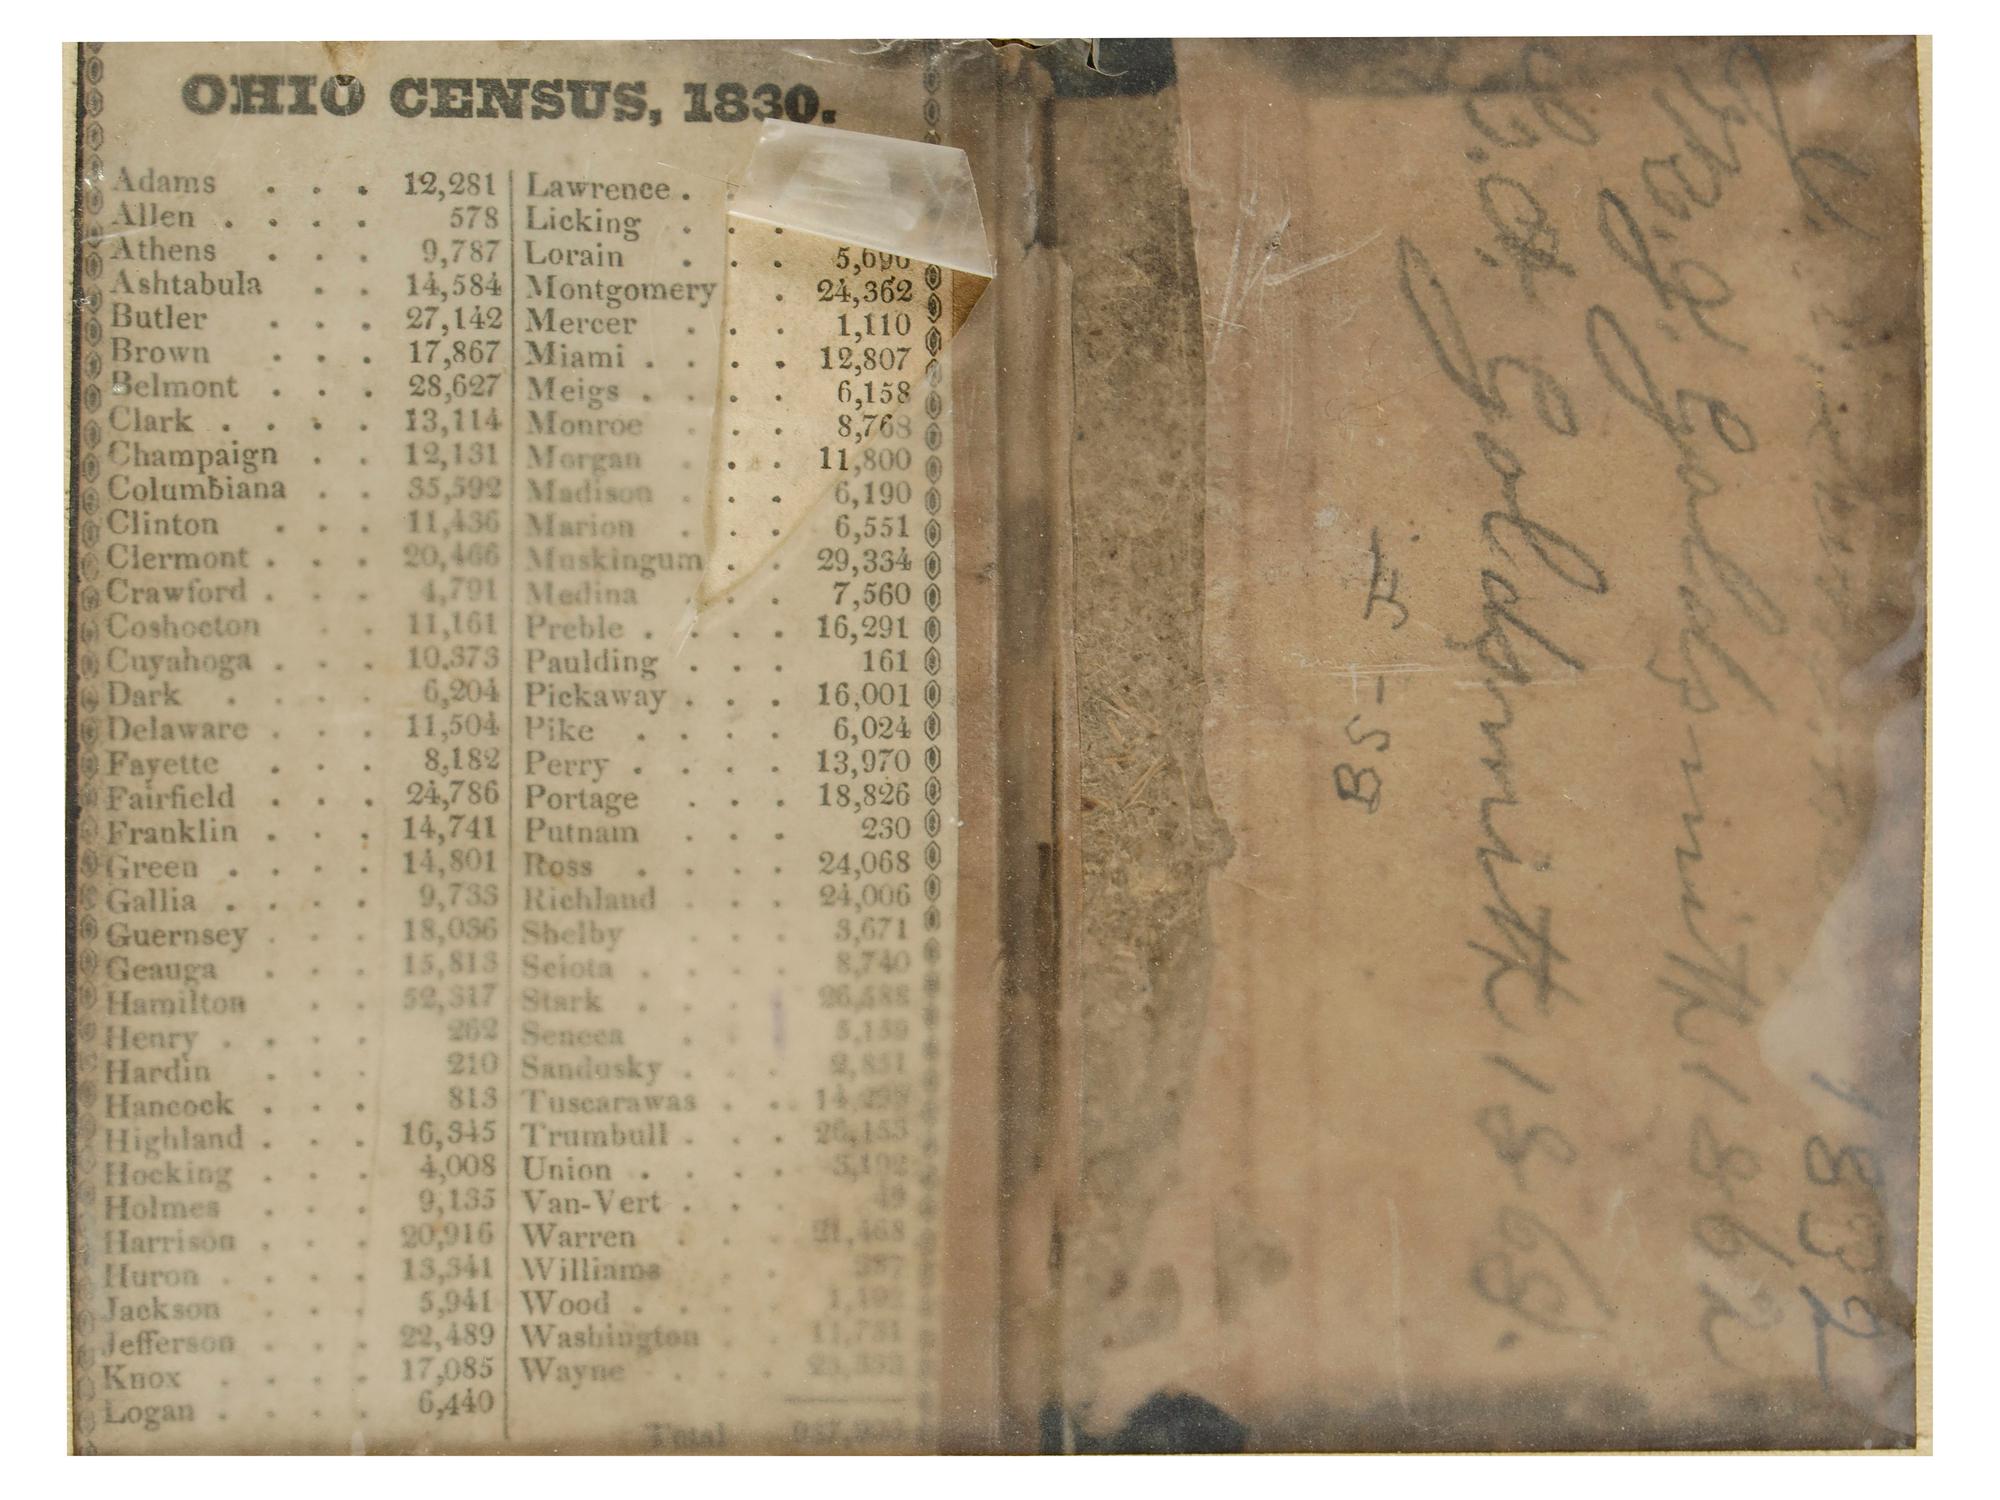 OHIO CENSUS, 1830.
Adams . . . 12,281
Allen . . . . 578
Athens . . . 9,787
Ashtabula . . 14,584
Butler . . . 27,142
Brown . . . 17,867
Belmont . . . 28,627
Clark . . . . 13,114
Champaign . . 12,131
Columbiana . . 35,592
Clinton . . . 11,436
Clermont . . . 20,466
Crawford . . . 4,791
Coshocton . . 11,161
Cuyahoga . . . 10,373
Dark . . . . 6,204
Delaware . . . 11,504
Fayette . . . 8,182
Fairfield . . . 24,786
Franklin . . . 14,741
Green . . . . 14,801
Gallia . . . . 9,733
Guernsey . . . 18,036
Geauga . . . 15,813
Hamilton . . 52,317
Henry . . . . 262
Hardin . . . 210
Hancock . . . 813
Highland . . . 16,345
Hocking . . . 4,008
Holmes . . . 9,135
Harrison . . . 20,916
Huron . . . . 13,341
Jackson . . . 5,941
Jefferson . . . 22,489
Knox . . . . 17,085
Logan . . . . 6,440
Lawrence .
Licking . .
Lorain . . . 5,696
Montgomery . 24,362
Mercer . . . 1,110
Miami . . . . 12,807
Meigs . . . . 6,158
Monroe . . . 8,768
Morgan . . . 11,800
Madison . . . 6,190
Marion . . . 6,551
Muskingum . . 29,334
Medina . . . 7,560
Preble . . . . 16,291
Paulding . . . 161
Pickaway . . . 16,001
Pike . . . . 6,024
Perry . . . . 13,970
Portage . . . 18,826
Putnam . . . 230
Ross . . . . 24,068
Richland . . . 24,006
Shelby . . . 3,671
Sciota . . . . 8,740
Stark . . . . 26,588
Seneca . . . 5,159
Sandusky . . . 2,851
Tuscarawas . .
Trumbull . . . 26,153
Union . . . . 3,192
Van-Vert . . .
Warren . . . 21,468
Williams . . .
Wood . . . .
Washington . . 11,731
Wayne . . . .
Total
BS-J
Goldsmith 1862
Goldsmith 1862
1832